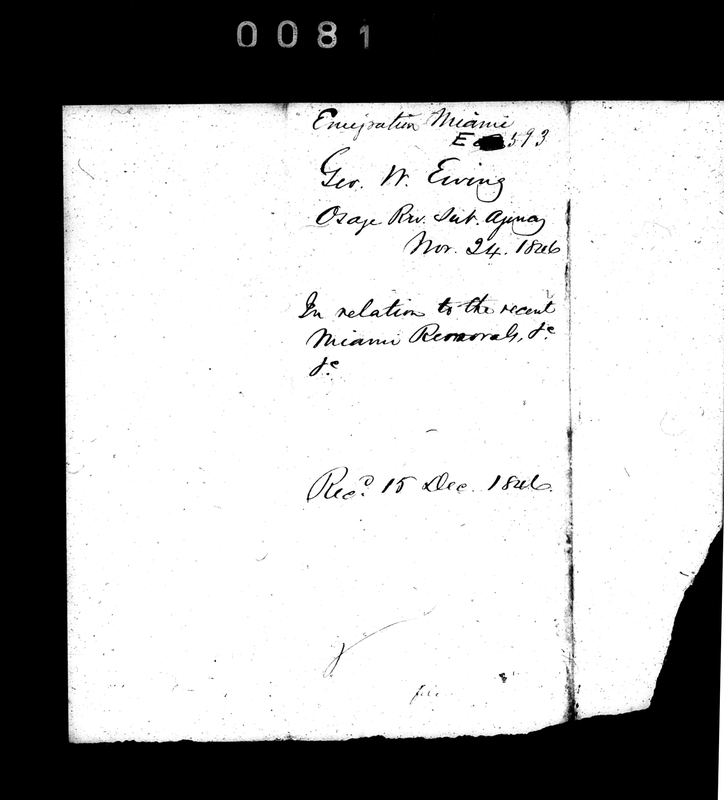 0081
Emigration Miami
E 593
Geo. W. Ewing
Osage Riv. Sub. Agency
Nov. 24. 1846
In relation to the recent
Miami Removals, &c
&c
Recd. 15 Dec. 1846.
file